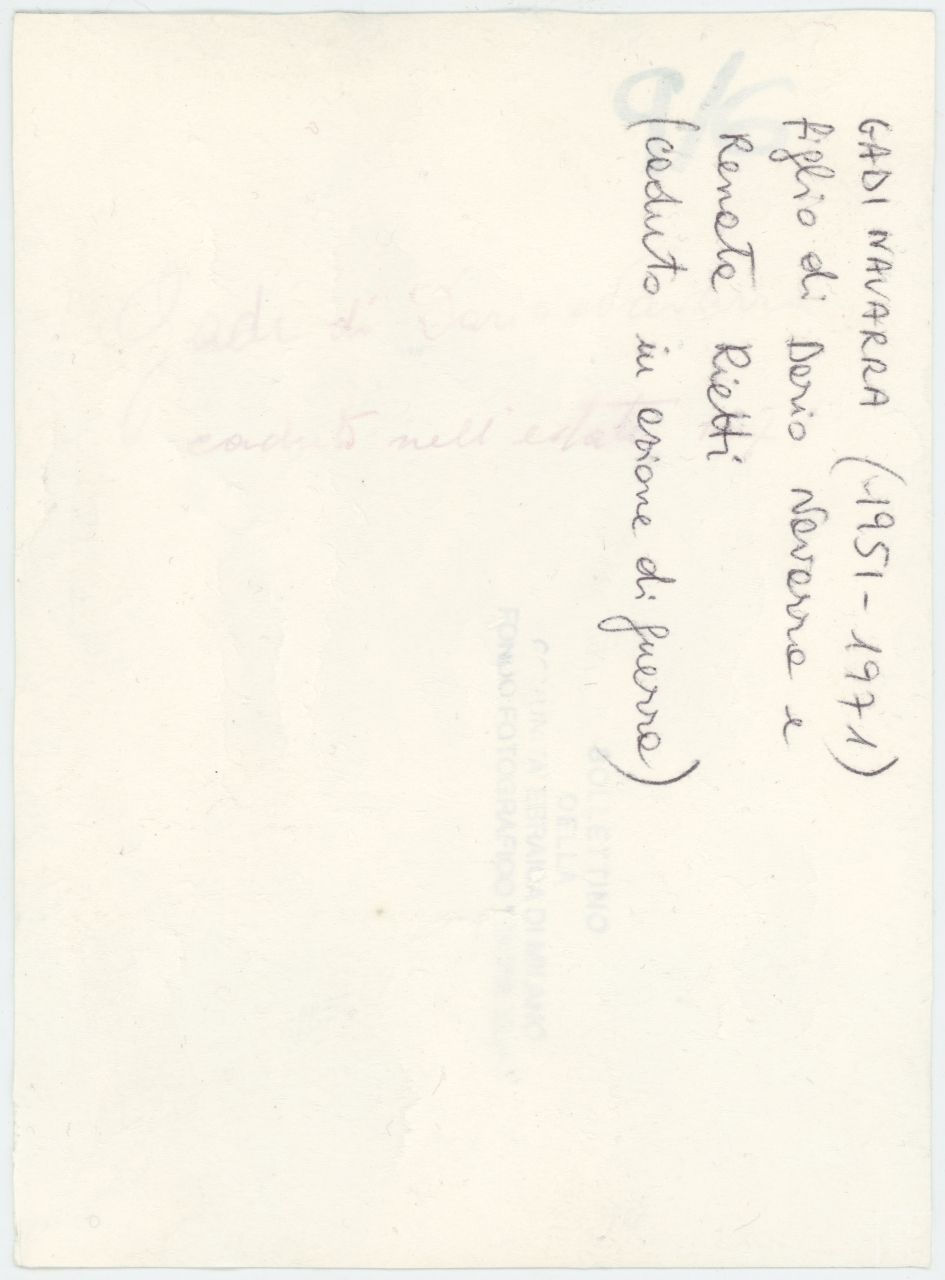 GADI NAVARRA (1951-1971)
figlio di Dario Navarra e
Renata Rietti
(caduto in azione di guerra)
Gadi di Dario Navarra
caduto nell'estate
BOLLETTINO
DELLA
COMUNITA EBRAICA DI MILANO
FONDO FOTOGRAFICO